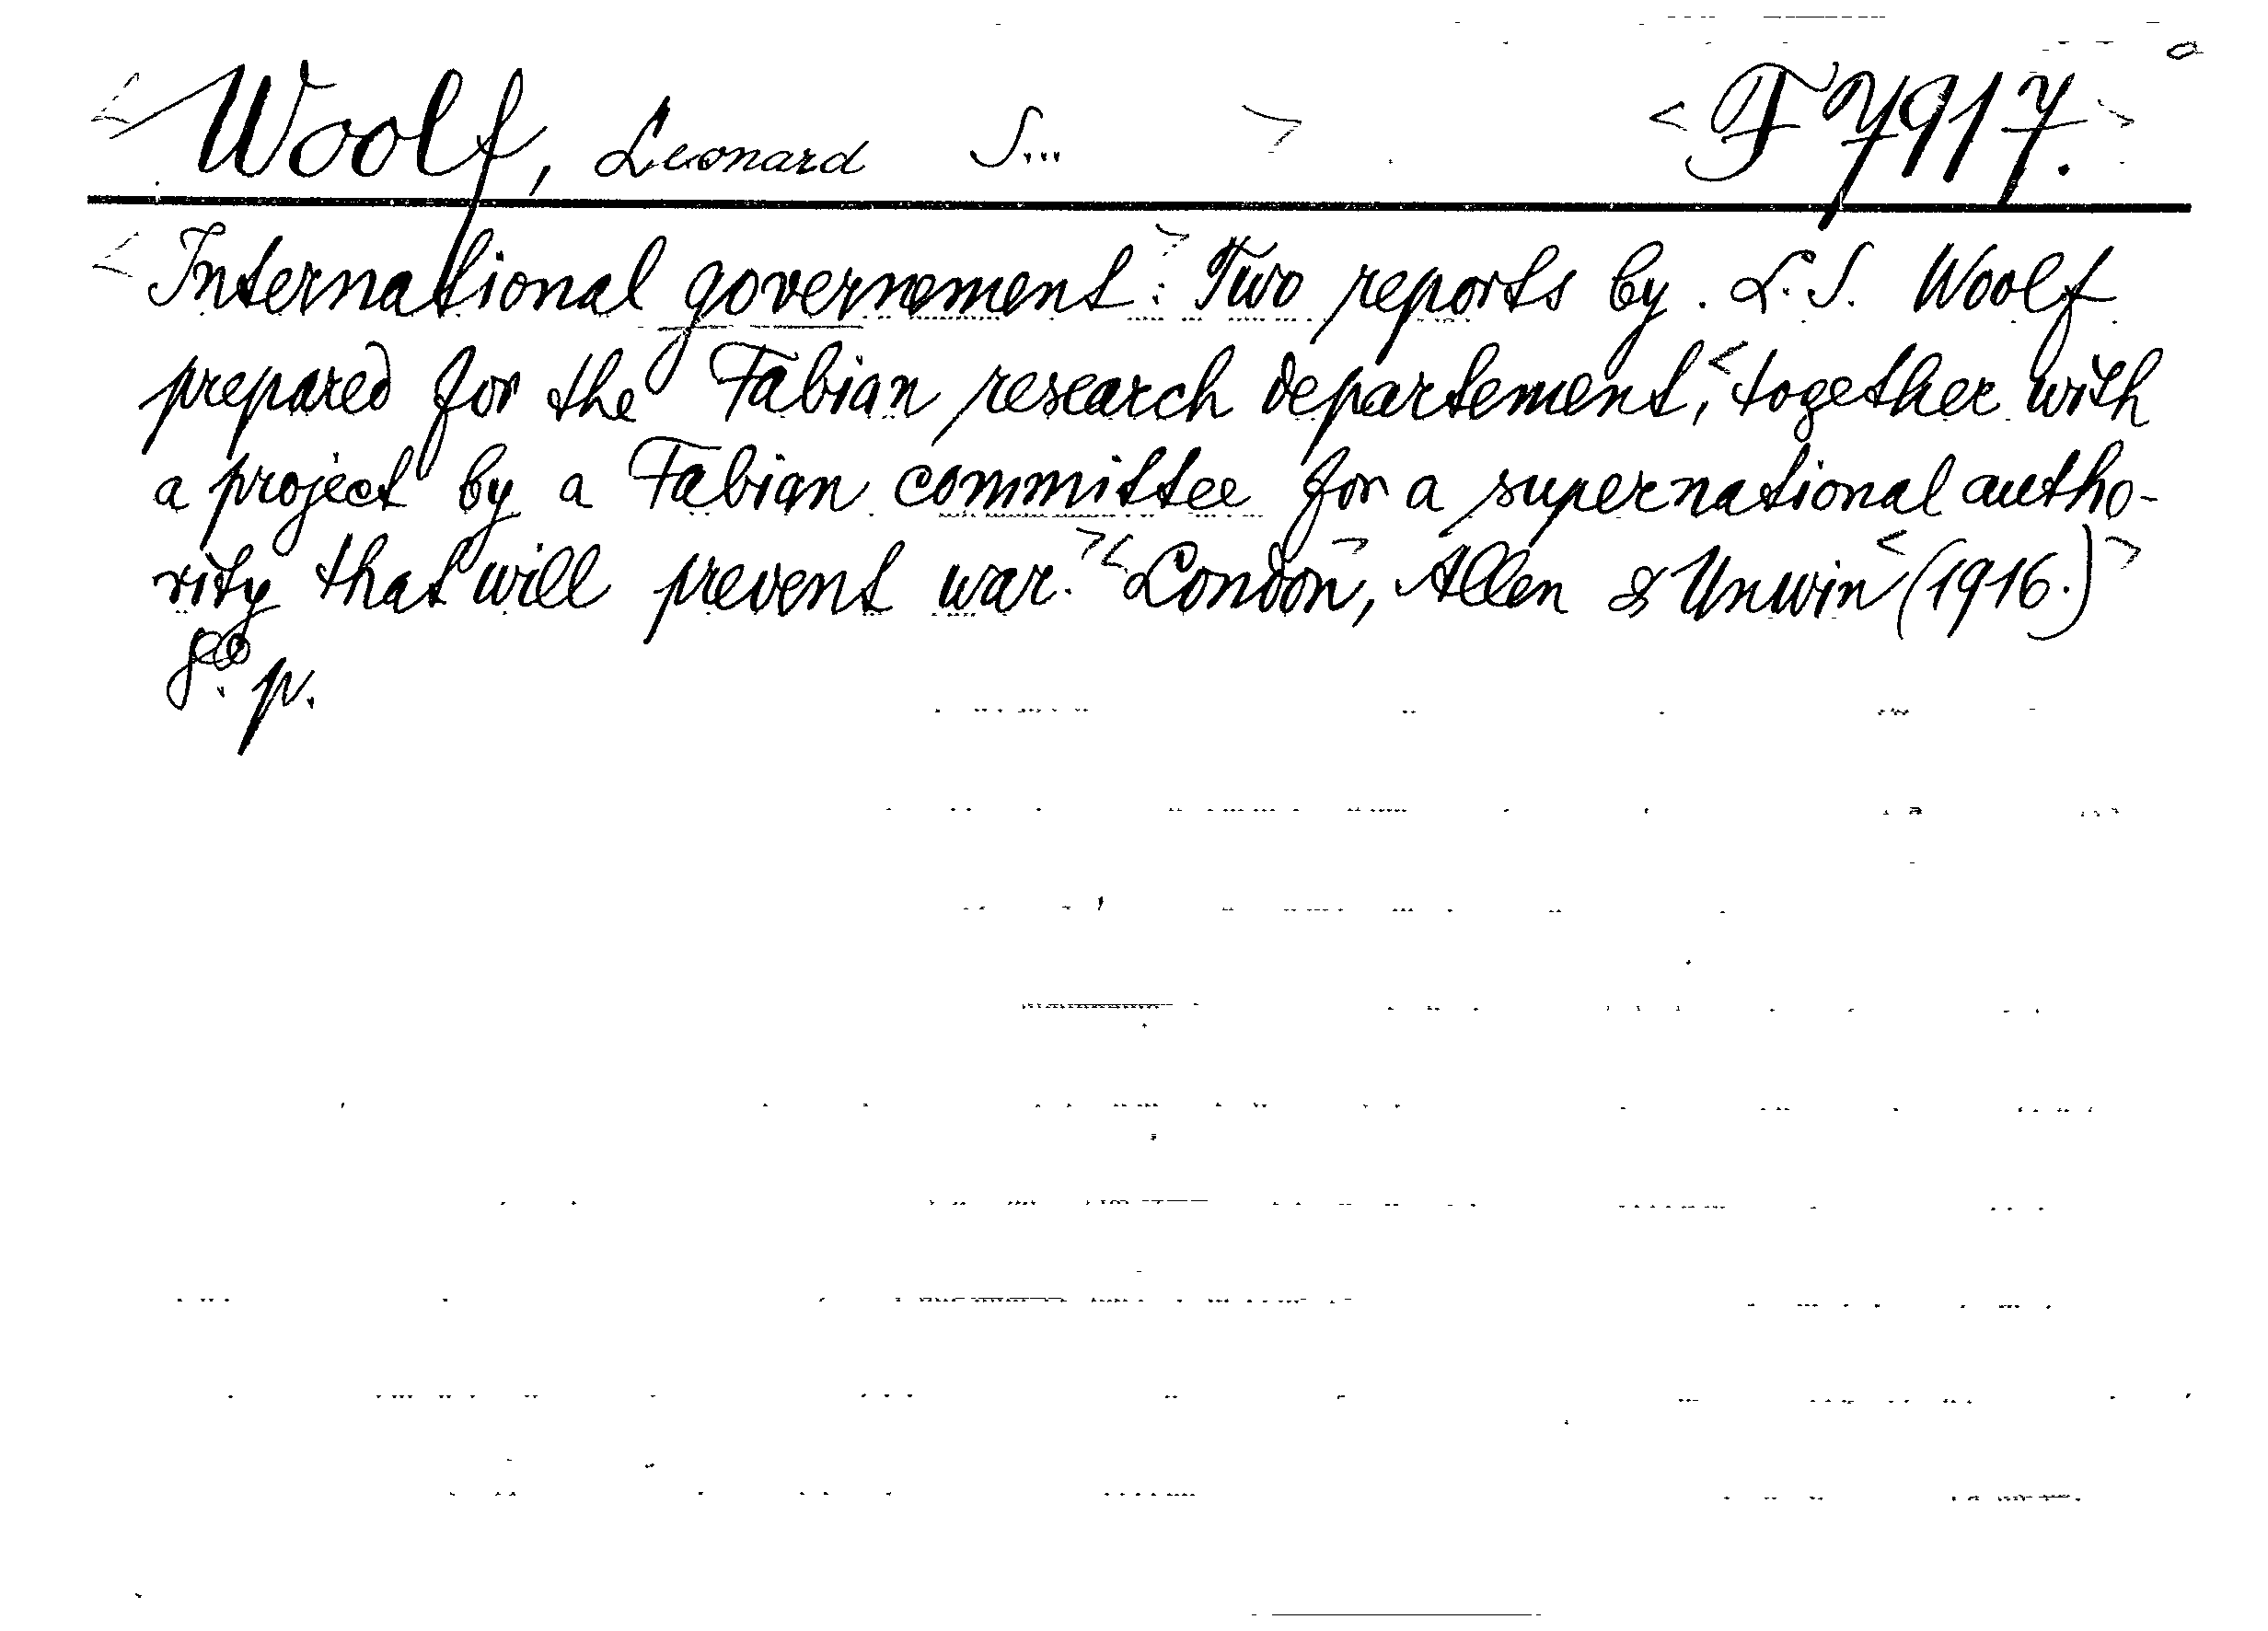 <Woolf, Leonard S...> <F 7917.>
<International governement:> Two reports by. L. S. Woolf
prepared for the Fabian research departement, <together with
a project by a Fabian committee for a supernational autho-
rity that will prevent war.> <London>, Allen & Unwin <(1916.)>
8º. p.